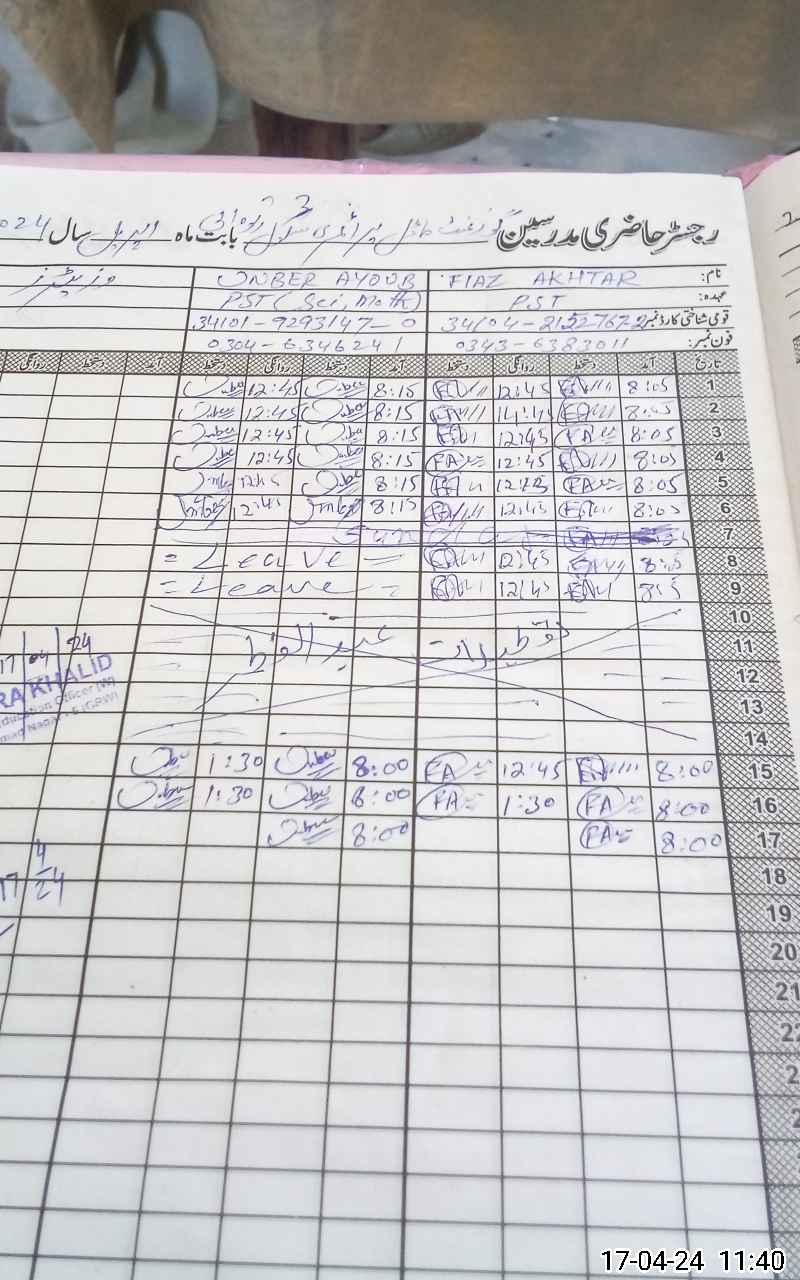 رجسٹر حاضری مدرسین گورنمنٹ ماڈل پرائمری سکول بابت ماہ اپریل سال 2024
نام: FIAZ AKHTAR UNBER AYOUB وزیٹرز
عہدہ: PST PST (Sci, Math)
قومی شناختی کارڈ نمبر 34101-9293147-0
فون نمبر: 0343-6383011 0304-6346241
تاریخ آمد دستخط روانگی دستخط آمد دستخط روانگی دستخط آمد دستخط روانگی
1 8:05 12:45 8:15 12:45
2 8:05 14:45 8:15 12:45
3 8:05 FA 12:45 8:15 12:45
4 8:05 12:45 FA 8:15 12:45
5 8:05 FA 8:15
6 8:05 12:45 8:15 12:45
7 Sunday
8 12:45 = Leave =
9 12:45 = Leave =
10
11 تعطیلات عید الفطر
12
13
14
15 8:00 12:45 FA 8:00 1:30
16 8:00 FA 1:30 FA 8:00 1:30
17 8:00 FA 8:00
18
19
20
21
17/04/24
RA KHALID
Education Officer (W)
17 4/24
17-04-24 11:40